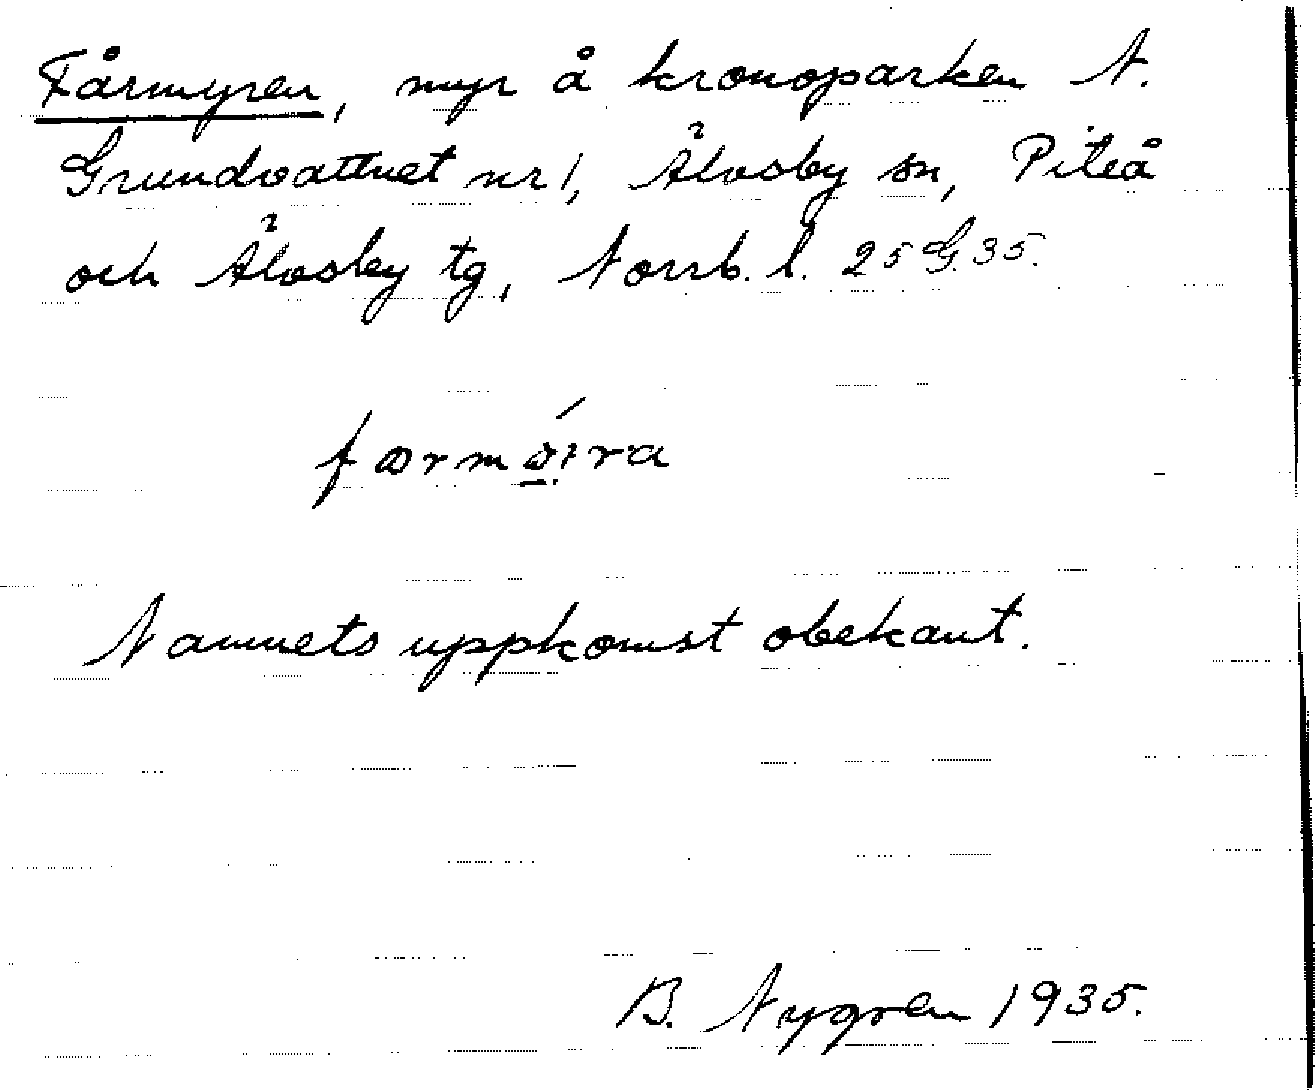 Fårmyren, myr å kronoparken N.
Grundvattnet nr 1, Älvsby sn, Piteå
och Älvsby tg, Norrb. l. 25 G. 35.
Namnets uppkomst obekant.
B. Nygren 1935.